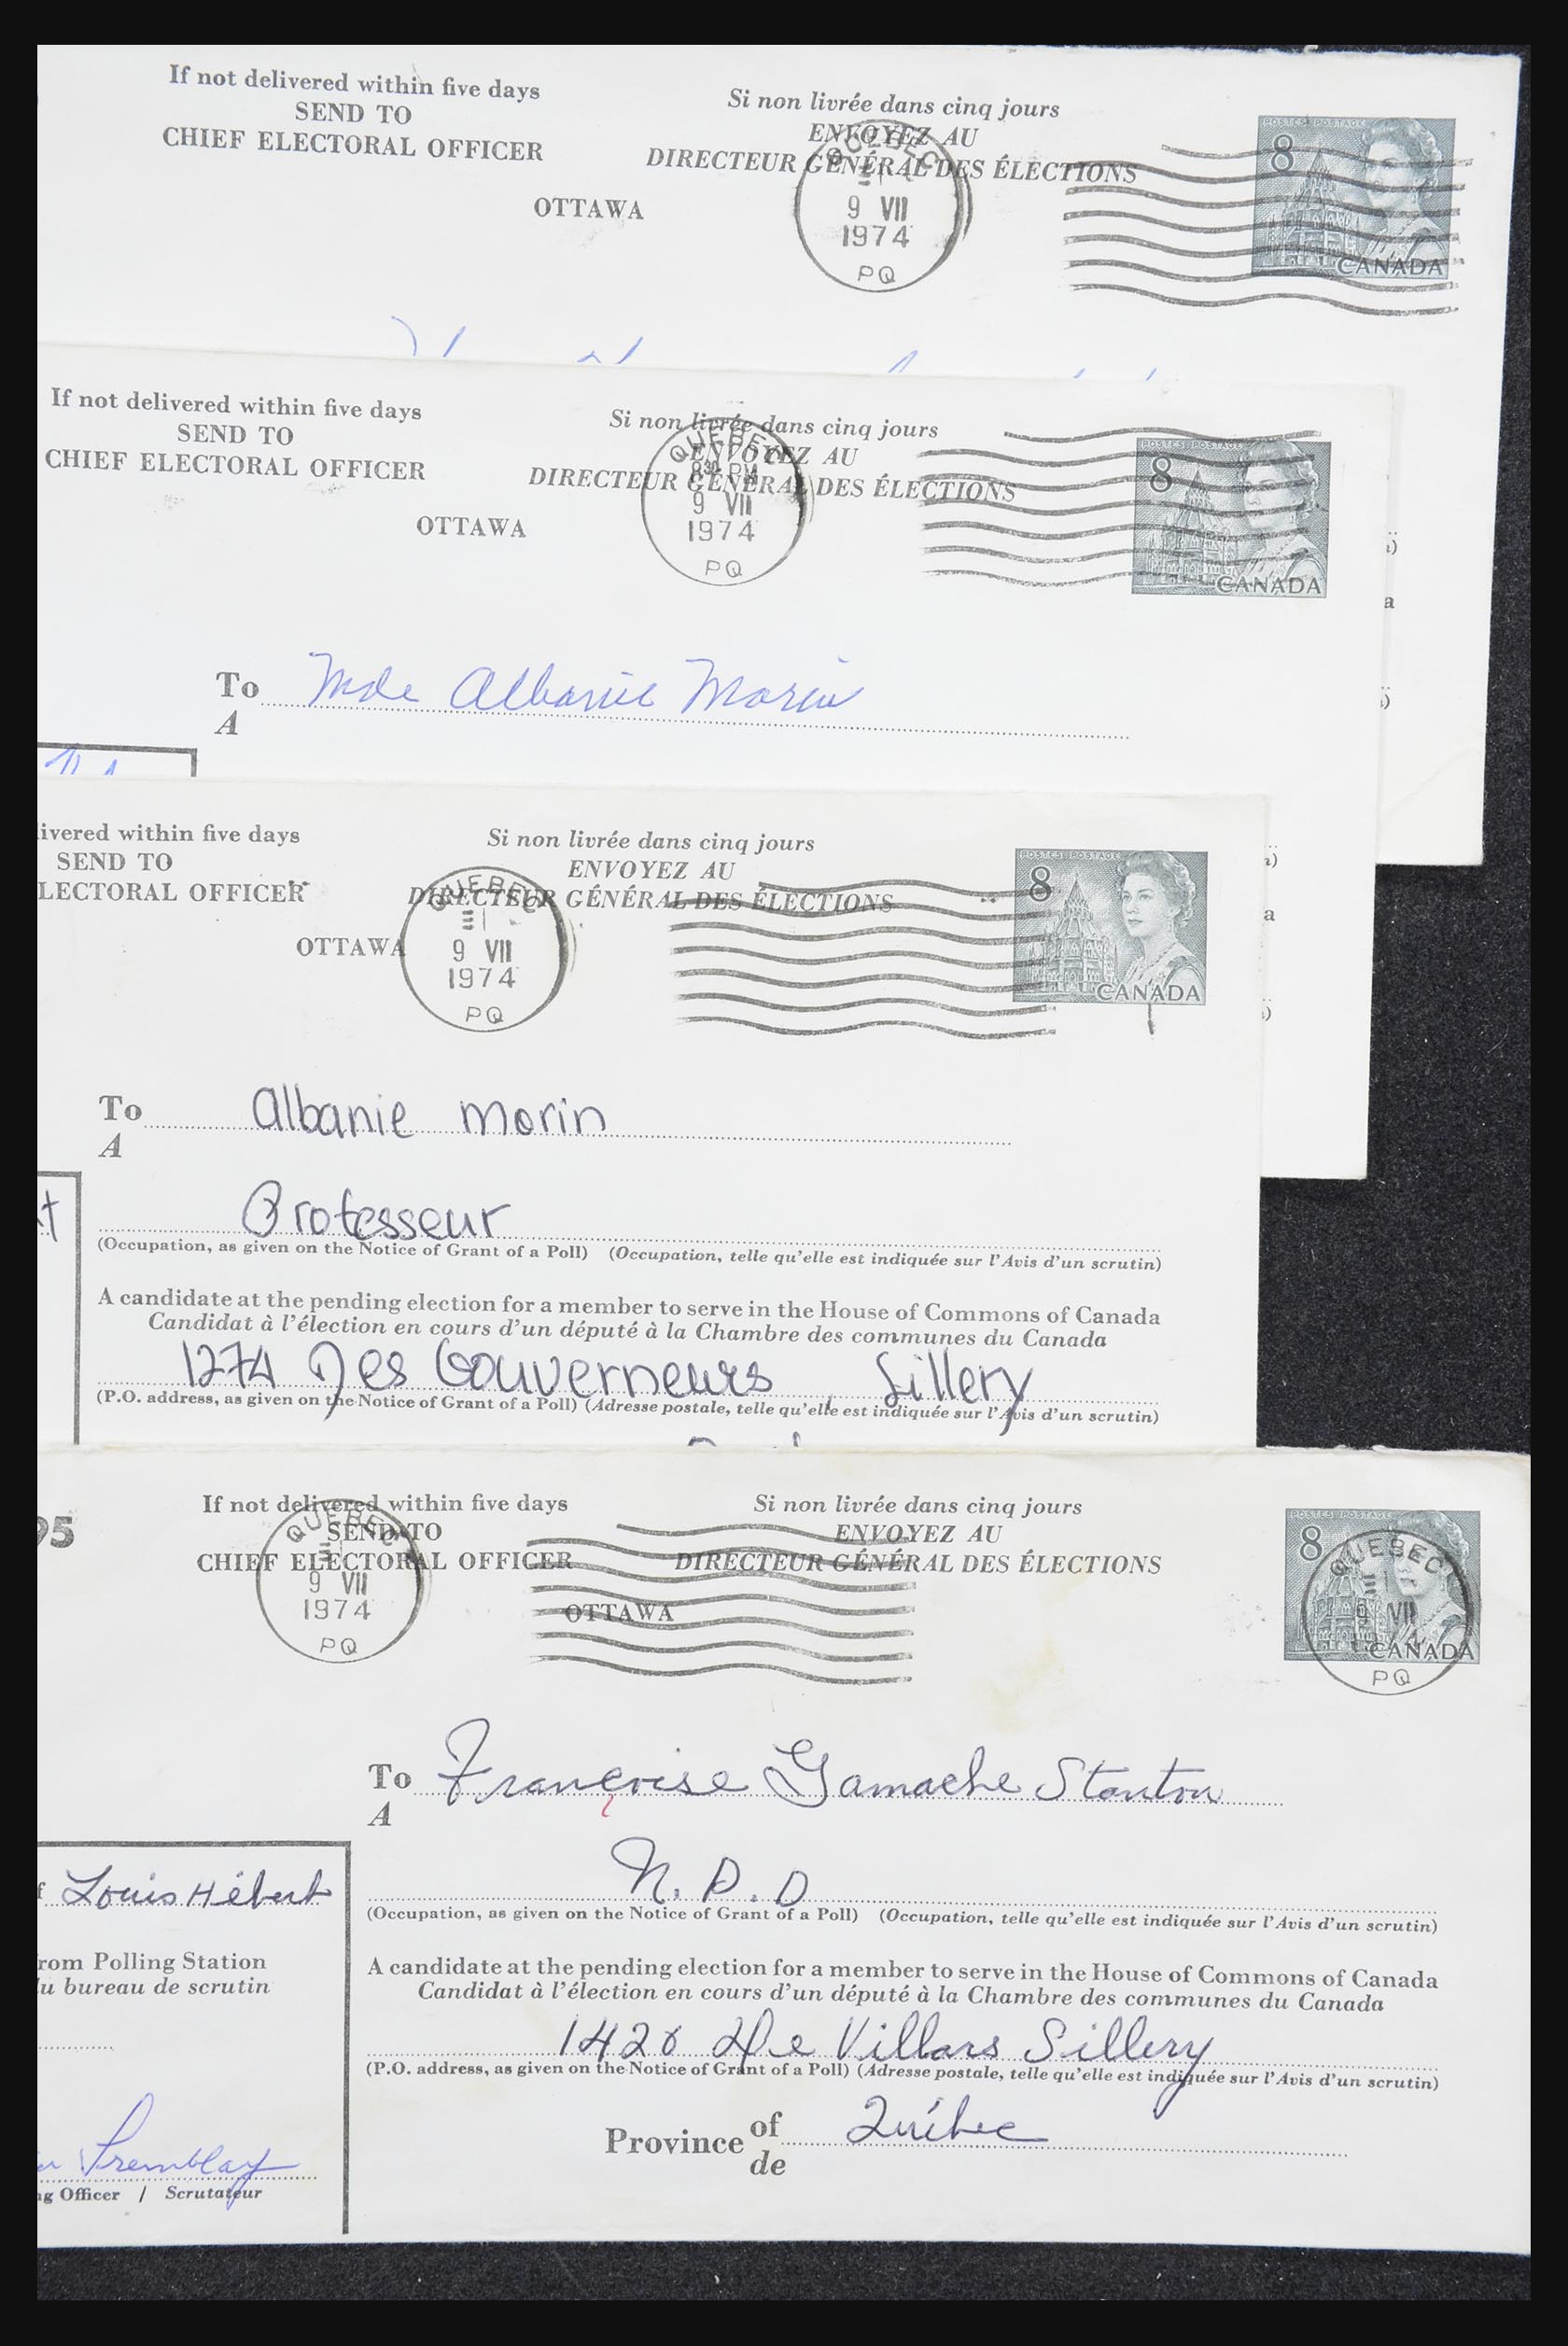 If not delivered within five days
SEND TO
CHIEF ELECTORAL OFFICER
Si non livrée dans cinq jours
ENVOYEZ AU
DIRECTEUR GÉNÉRAL DES ÉLECTIONS
OTTAWA
QUEBEC
9 VII
1974
PQ
POSTES POSTAGE
8
CANADA
If not delivered within five days
SEND TO
CHIEF ELECTORAL OFFICER
Si non livrée dans cinq jours
ENVOYEZ AU
DIRECTEUR GÉNÉRAL DES ÉLECTIONS
OTTAWA
QUEBEC
8 30 PM
9 VII
1974
PQ
POSTES POSTAGE
8
CANADA
To Mde Albanie Morin
A
a
livered within five days
SEND TO
LECTORAL OFFICER
Si non livrée dans cinq jours
ENVOYEZ AU
DIRECTEUR GÉNÉRAL DES ÉLECTIONS
OTTAWA
QUEBEC
9 VII
1974
PQ
POSTES POSTAGE
8
CANADA
a
To Albanie Morin
A
Professeur
(Occupation, as given on the Notice of Grant of a Poll) (Occupation, telle qu'elle est indiquée sur l'Avis d'un scrutin)
A candidate at the pending election for a member to serve in the House of Commons of Canada
Candidat à l'élection en cours d'un député à la Chambre des communes du Canada
1274 Des Gouverneurs, Sillery
(P.O. address, as given on the Notice of Grant of a Poll) (Adresse postale, telle qu'elle est indiquée sur l'Avis d'un scrutin)
95
If not delivered within five days
SEND TO
CHIEF ELECTORAL OFFICER
Si non livrée dans cinq jours
ENVOYEZ AU
DIRECTEUR GÉNÉRAL DES ÉLECTIONS
OTTAWA
QUEBEC
9 VII
1974
PQ
POSTES POSTAGE
8
CANADA
QUEBEC
VII
PQ
To Françoise Gamache Stanton
A
N.P.D
(Occupation, as given on the Notice of Grant of a Poll) (Occupation, telle qu'elle est indiquée sur l'Avis d'un scrutin)
A candidate at the pending election for a member to serve in the House of Commons of Canada
Candidat à l'élection en cours d'un député à la Chambre des communes du Canada
De Villars Sillery
(P.O. address, as given on the Notice of Grant of a Poll) (Adresse postale, telle qu'elle est indiquée sur l'Avis d'un scrutin)
Province of Québec
de
f Louis Hébert
rom Polling Station
u bureau de scrutin
Tremblay
ng Officer / Scrutateur